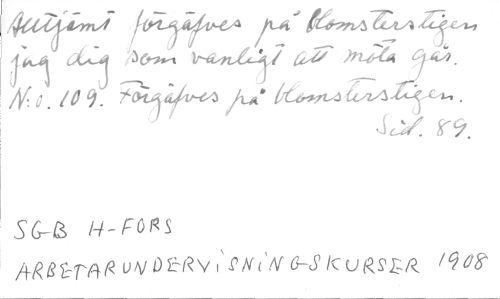 Alltjämt förgäfves på blomsterstigen
jag dig som vanligt att möta går.
N:o. 109. Förgäfves på blomsterstigen.
Sid. 89.
SGB H-FORS
ARBETARUNDERViSNiNGSKURSER 1908